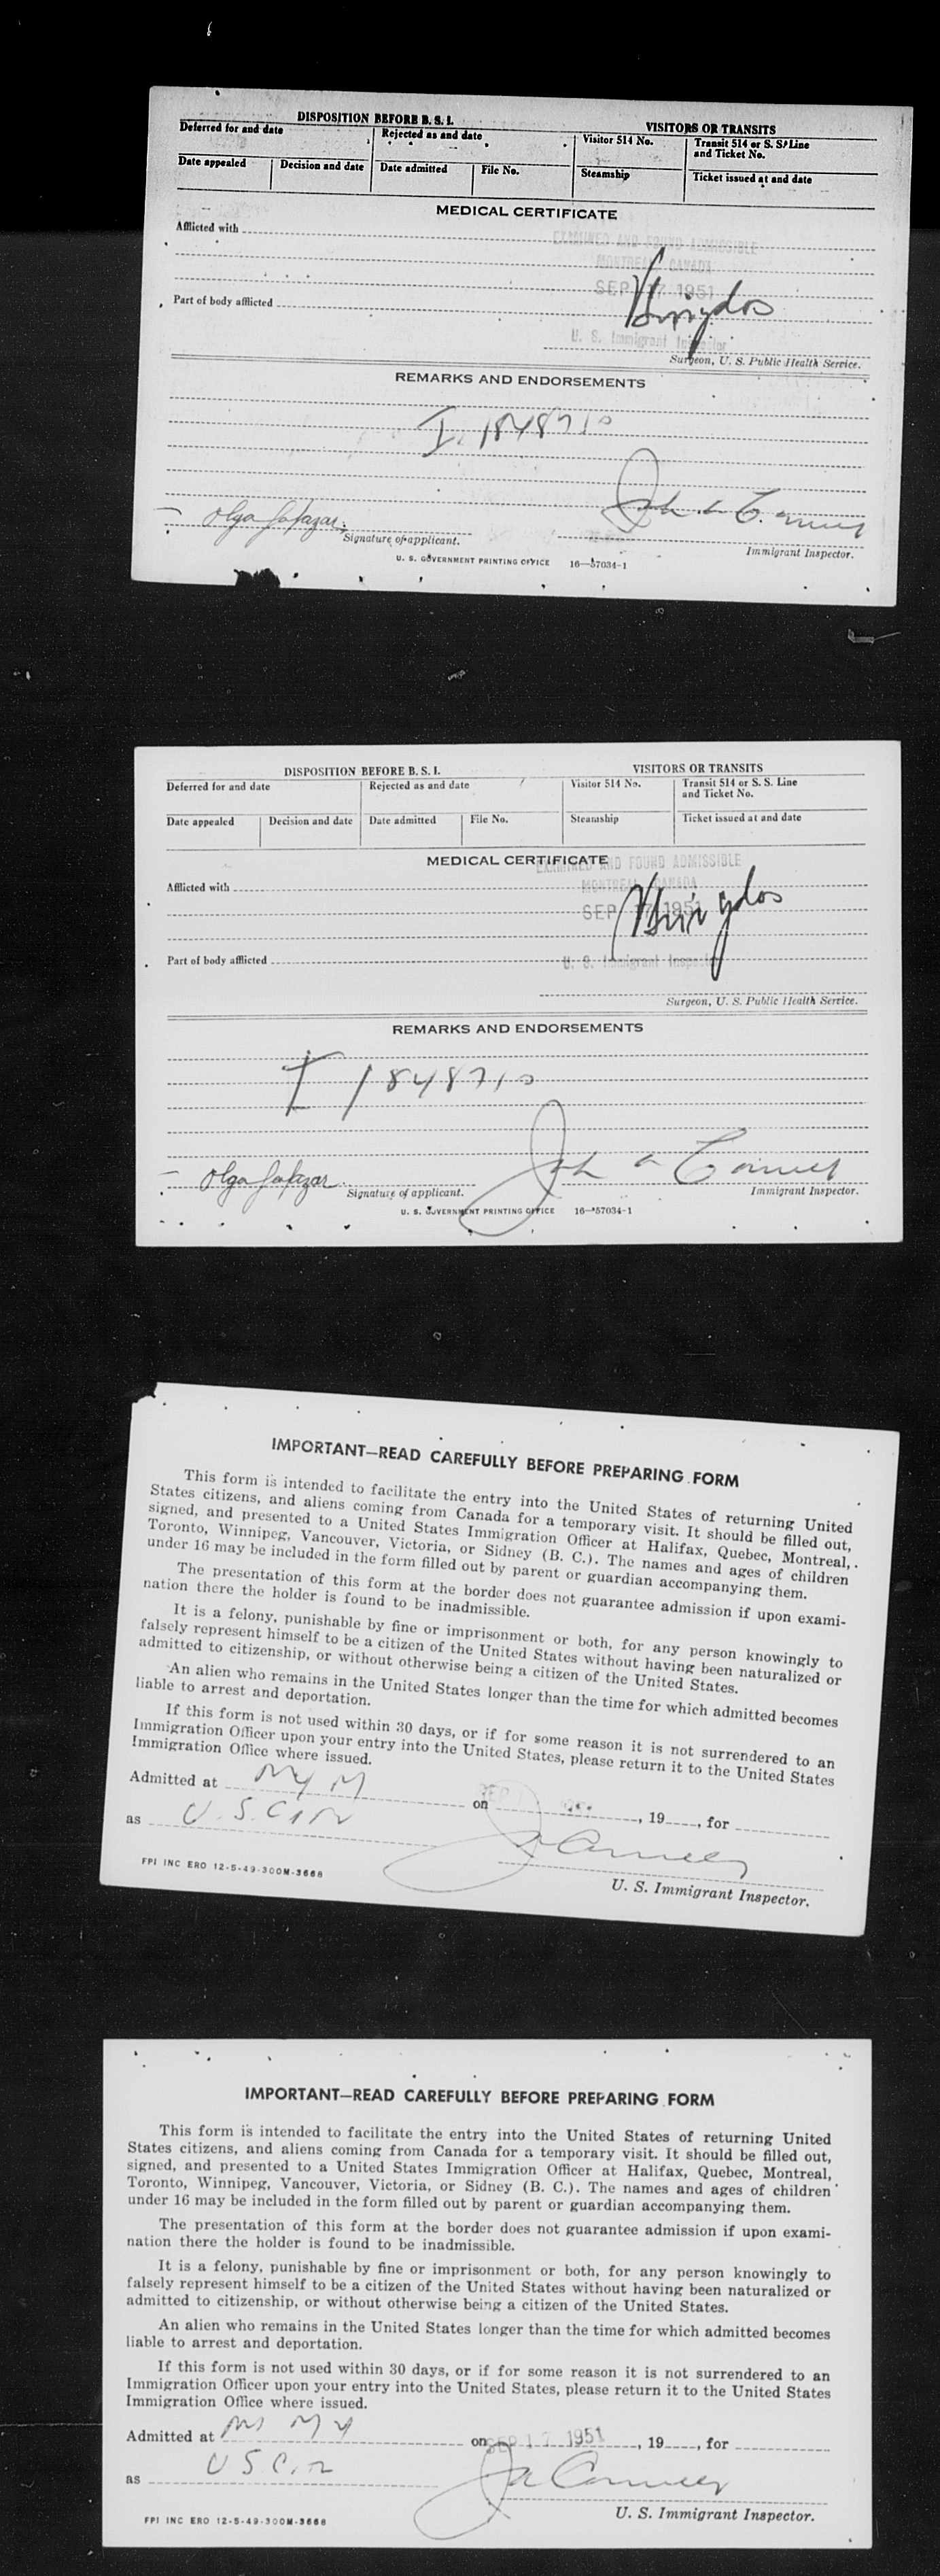 DISPOSITION BEFORE B. S. I. VISITORS OR TRANSITS
Deferred for and date Rejected as and date Visitor 514 No. Transit 514 or S. S. Line
and Ticket No.
Date appealed Decision and date Date admitted File No. Steamship Ticket issued at and date
MEDICAL CERTIFICATE
Afflicted with
EXAMINED AND FOUND ADMISSIBLE
MONTREAL CANADA
SEP 17 1951
Part of body afflicted
U. S. Immigrant Inspector
Surgeon, U. S. Public Health Service.
REMARKS AND ENDORSEMENTS
I. 1848710
Olga Salazar
Signature of applicant. Immigrant Inspector.
U. S. GOVERNMENT PRINTING OFFICE 16—57034-1
DISPOSITION BEFORE B. S. I. VISITORS OR TRANSITS
Deferred for and date Rejected as and date Visitor 514 No. Transit 514 or S. S. Line
and Ticket No.
Date appealed Decision and date Date admitted File No. Steamship Ticket issued at and date
MEDICAL CERTIFICATE
EXAMINED AND FOUND ADMISSIBLE
Afflicted with MONTREAL CANADA
SEP 17 1951
Part of body afflicted U. S. Immigrant Inspector
Surgeon, U. S. Public Health Service.
REMARKS AND ENDORSEMENTS
I 1848710
Olga Salazar
Signature of applicant. Immigrant Inspector.
U. S. GOVERNMENT PRINTING OFFICE 16—57034-1
IMPORTANT—READ CAREFULLY BEFORE PREPARING FORM
This form is intended to facilitate the entry into the United States of returning United
States citizens, and aliens coming from Canada for a temporary visit. It should be filled out,
signed, and presented to a United States Immigration Officer at Halifax, Quebec, Montreal,
Toronto, Winnipeg, Vancouver, Victoria, or Sidney (B. C.). The names and ages of children
under 16 may be included in the form filled out by parent or guardian accompanying them.
The presentation of this form at the border does not guarantee admission if upon exami-
nation there the holder is found to be inadmissible.
It is a felony, punishable by fine or imprisonment or both, for any person knowingly to
falsely represent himself to be a citizen of the United States without having been naturalized or
admitted to citizenship, or without otherwise being a citizen of the United States.
An alien who remains in the United States longer than the time for which admitted becomes
liable to arrest and deportation.
If this form is not used within 30 days, or if for some reason it is not surrendered to an
Immigration Officer upon your entry into the United States, please return it to the United States
Immigration Office where issued.
Admitted at on SEP , 19 , for
as
U. S. Immigrant Inspector.
FPI INC ERO 12-5-49-300M-3668
IMPORTANT—READ CAREFULLY BEFORE PREPARING FORM
This form is intended to facilitate the entry into the United States of returning United
States citizens, and aliens coming from Canada for a temporary visit. It should be filled out,
signed, and presented to a United States Immigration Officer at Halifax, Quebec, Montreal,
Toronto, Winnipeg, Vancouver, Victoria, or Sidney (B. C.). The names and ages of children
under 16 may be included in the form filled out by parent or guardian accompanying them.
The presentation of this form at the border does not guarantee admission if upon exami-
nation there the holder is found to be inadmissible.
It is a felony, punishable by fine or imprisonment or both, for any person knowingly to
falsely represent himself to be a citizen of the United States without having been naturalized or
admitted to citizenship, or without otherwise being a citizen of the United States.
An alien who remains in the United States longer than the time for which admitted becomes
liable to arrest and deportation.
If this form is not used within 30 days, or if for some reason it is not surrendered to an
Immigration Officer upon your entry into the United States, please return it to the United States
Immigration Office where issued.
Admitted at on SEP 17 1951 , 19 , for
as
U. S. Immigrant Inspector.
FPI INC ERO 12-5-49-300M-3668